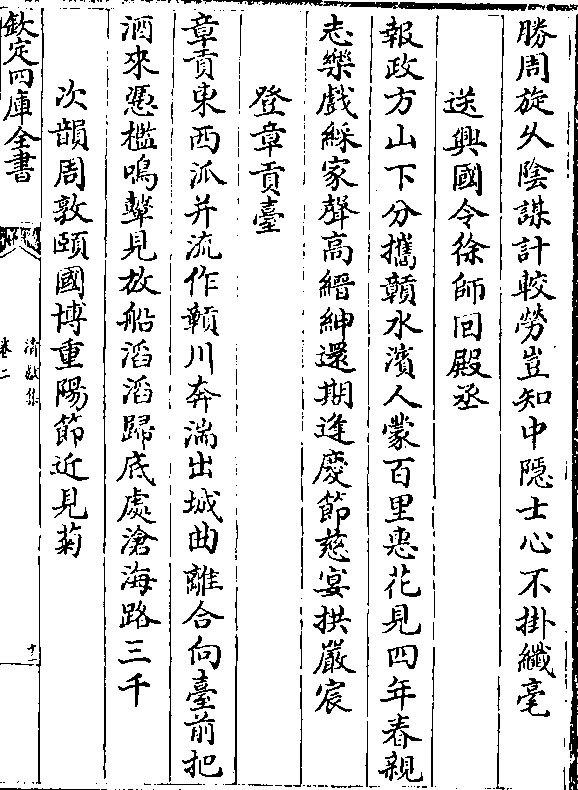 勝周旋久陰謀計較勞豈知中隠士心不掛纎毫
送興國令徐師回殿丞
報政方山下分攜贛水濱人蒙百里惠花見四年春親
志樂戲綵家聲髙縉紳還期逢慶節慈宴拱嚴宸
登章貢臺
章貢東西派并流作贛川奔湍出城曲離合向臺前把
酒來憑檻鳴鼙見放船滔滔歸底處滄海路三千
次韻周敦頤國博重陽節近見菊
欽定四庫全書
清獻集
卷二
十二